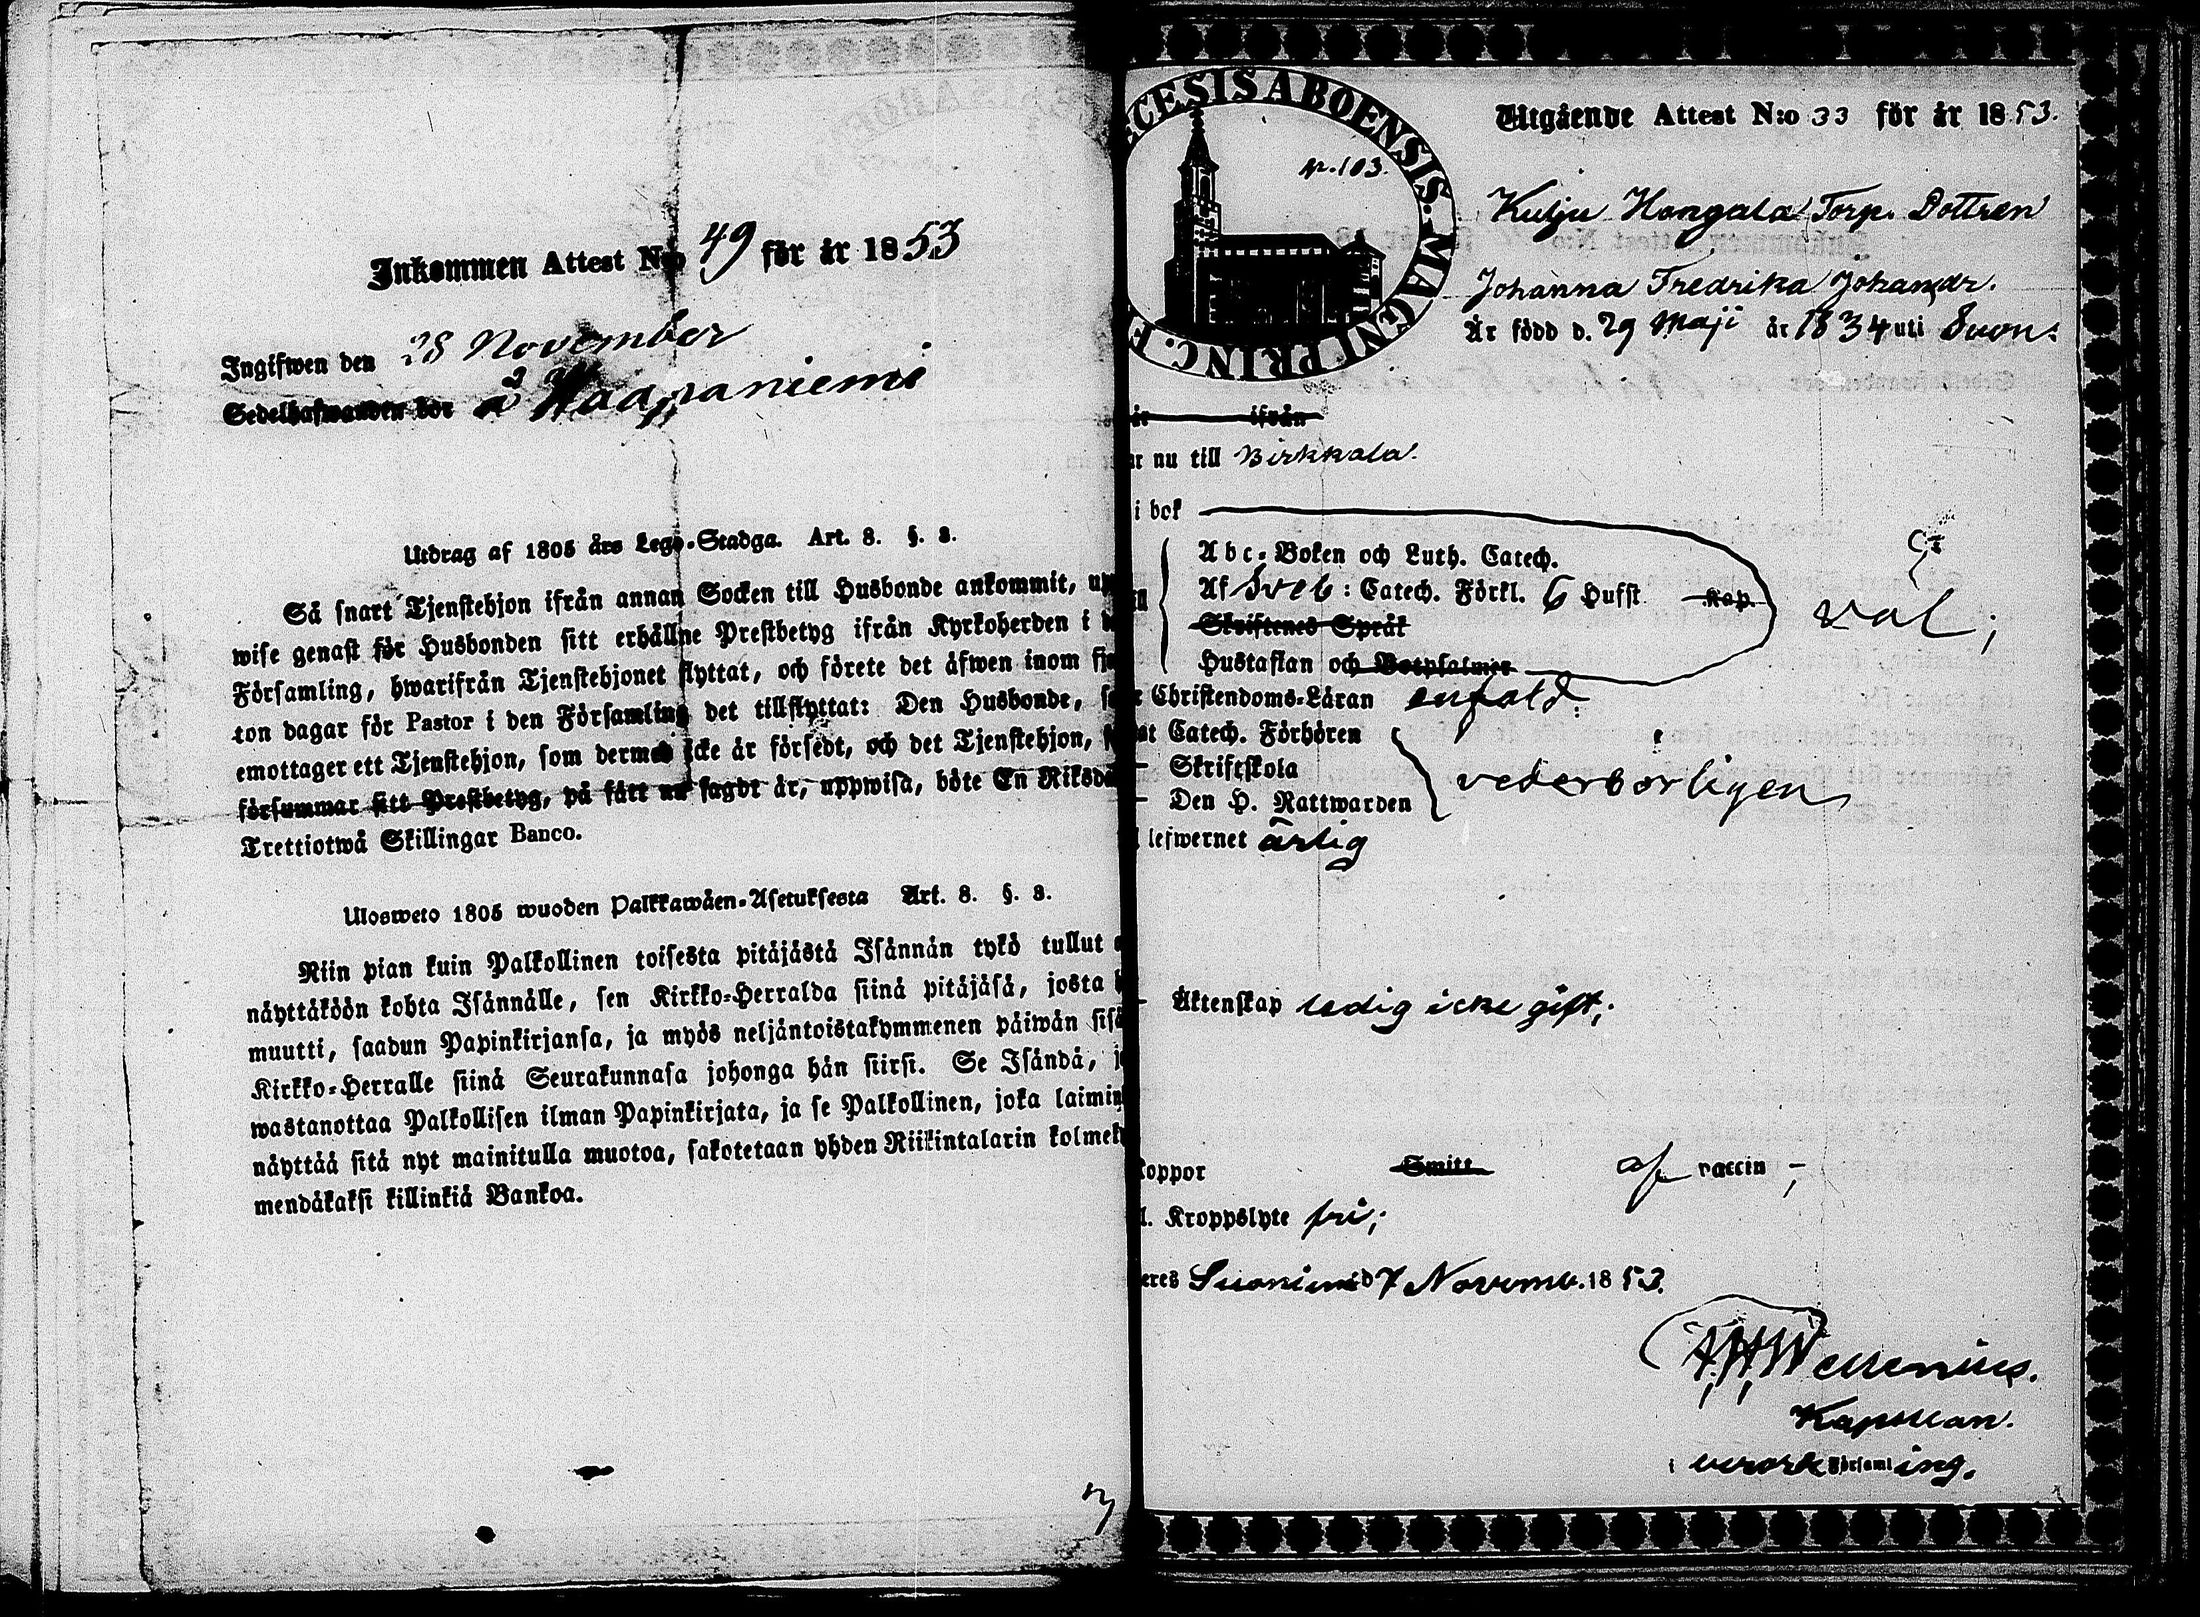 Inkommen Attest N:o 49 för år 1853
Ingifwen den 28 November
Sedelhafwanden bor å Haapaniemi
Utdrag af 1805 års Lego-Stadga. Art. 8. §. 8.
Så snart Tjenstehjon ifrån annan Socken till Husbonde ankommit, up
wise genast för Husbonden sitt erhållne Prestbetyg ifrån Kyrkoherden i
Församling, hwarifrån Tjenstehjonet flyttat, och förete det äfwen inom fj
ton dagar för Pastor i den Församling det tillflyttat: Den Husbonde, s
emottager ett Tjenstehjon, som dermed icke är försedt, och det Tjenstehjon, s
försummar sitt Prestbetyg, på sätt nu sagdt är, uppwisa, böte En Riksda
Trettiotwå Skillingar Banco.
Ulosweto 1805 wuoden Palkkawäen-Asetuksesta Art. 8. §. 8.
Niin pian kuin Palkollinen toisesta pitäjästä Isännän tykö tullut
näyttäköön kohta Isännälle, sen Kirkko-Herralda siinä pitäjäsä, josta
muutti, saadun Papinkirjansa, ja myös neljäntoistakymmenen päiwän sisä
Kirkko-Herralle siinä Seurakunnasa johonga hän siirsi. Se Isändä, j
wastanottaa Palkollisen ilman Papinkirjata, ja se Palkollinen, joka laimin
näyttää sitä nyt mainitulla muotoa, sakotetaan yhden Riikintalarin kolmek
mendäkaksi killinkiä Bankoa.
ECESIS ABOENSIS. MAGNI PRINC. F
N. 103.
Utgående Attest N:o 33 för år 1853.
Kulju Hongala Torp. Dottren
Johanna Fredrika Johansdr.
Är född d. 29 Maji år 1834 uti Suon:
är ifrån
r nu till Birkkala.
i bok
Abc-Boken och Luth. Catech.
Af Sveb: Catech. Förkl. 6 Hufst kap.
Skriftenes Språk
Hustaflan och Botpsalmer
väl;
Christendoms-Läran enfald:
st Catech. Förhören
Skriftskola
Den H. Nattwarden
vederbörligen
lefwernet ärlig
Äktenskap ledig icke gift;
koppor Smitt af vaccin;
l. Kroppslyte fri;
eres Suoniemi d 7 Novemb. 1853.
Wessenius.
Kapellan.
i Församling.